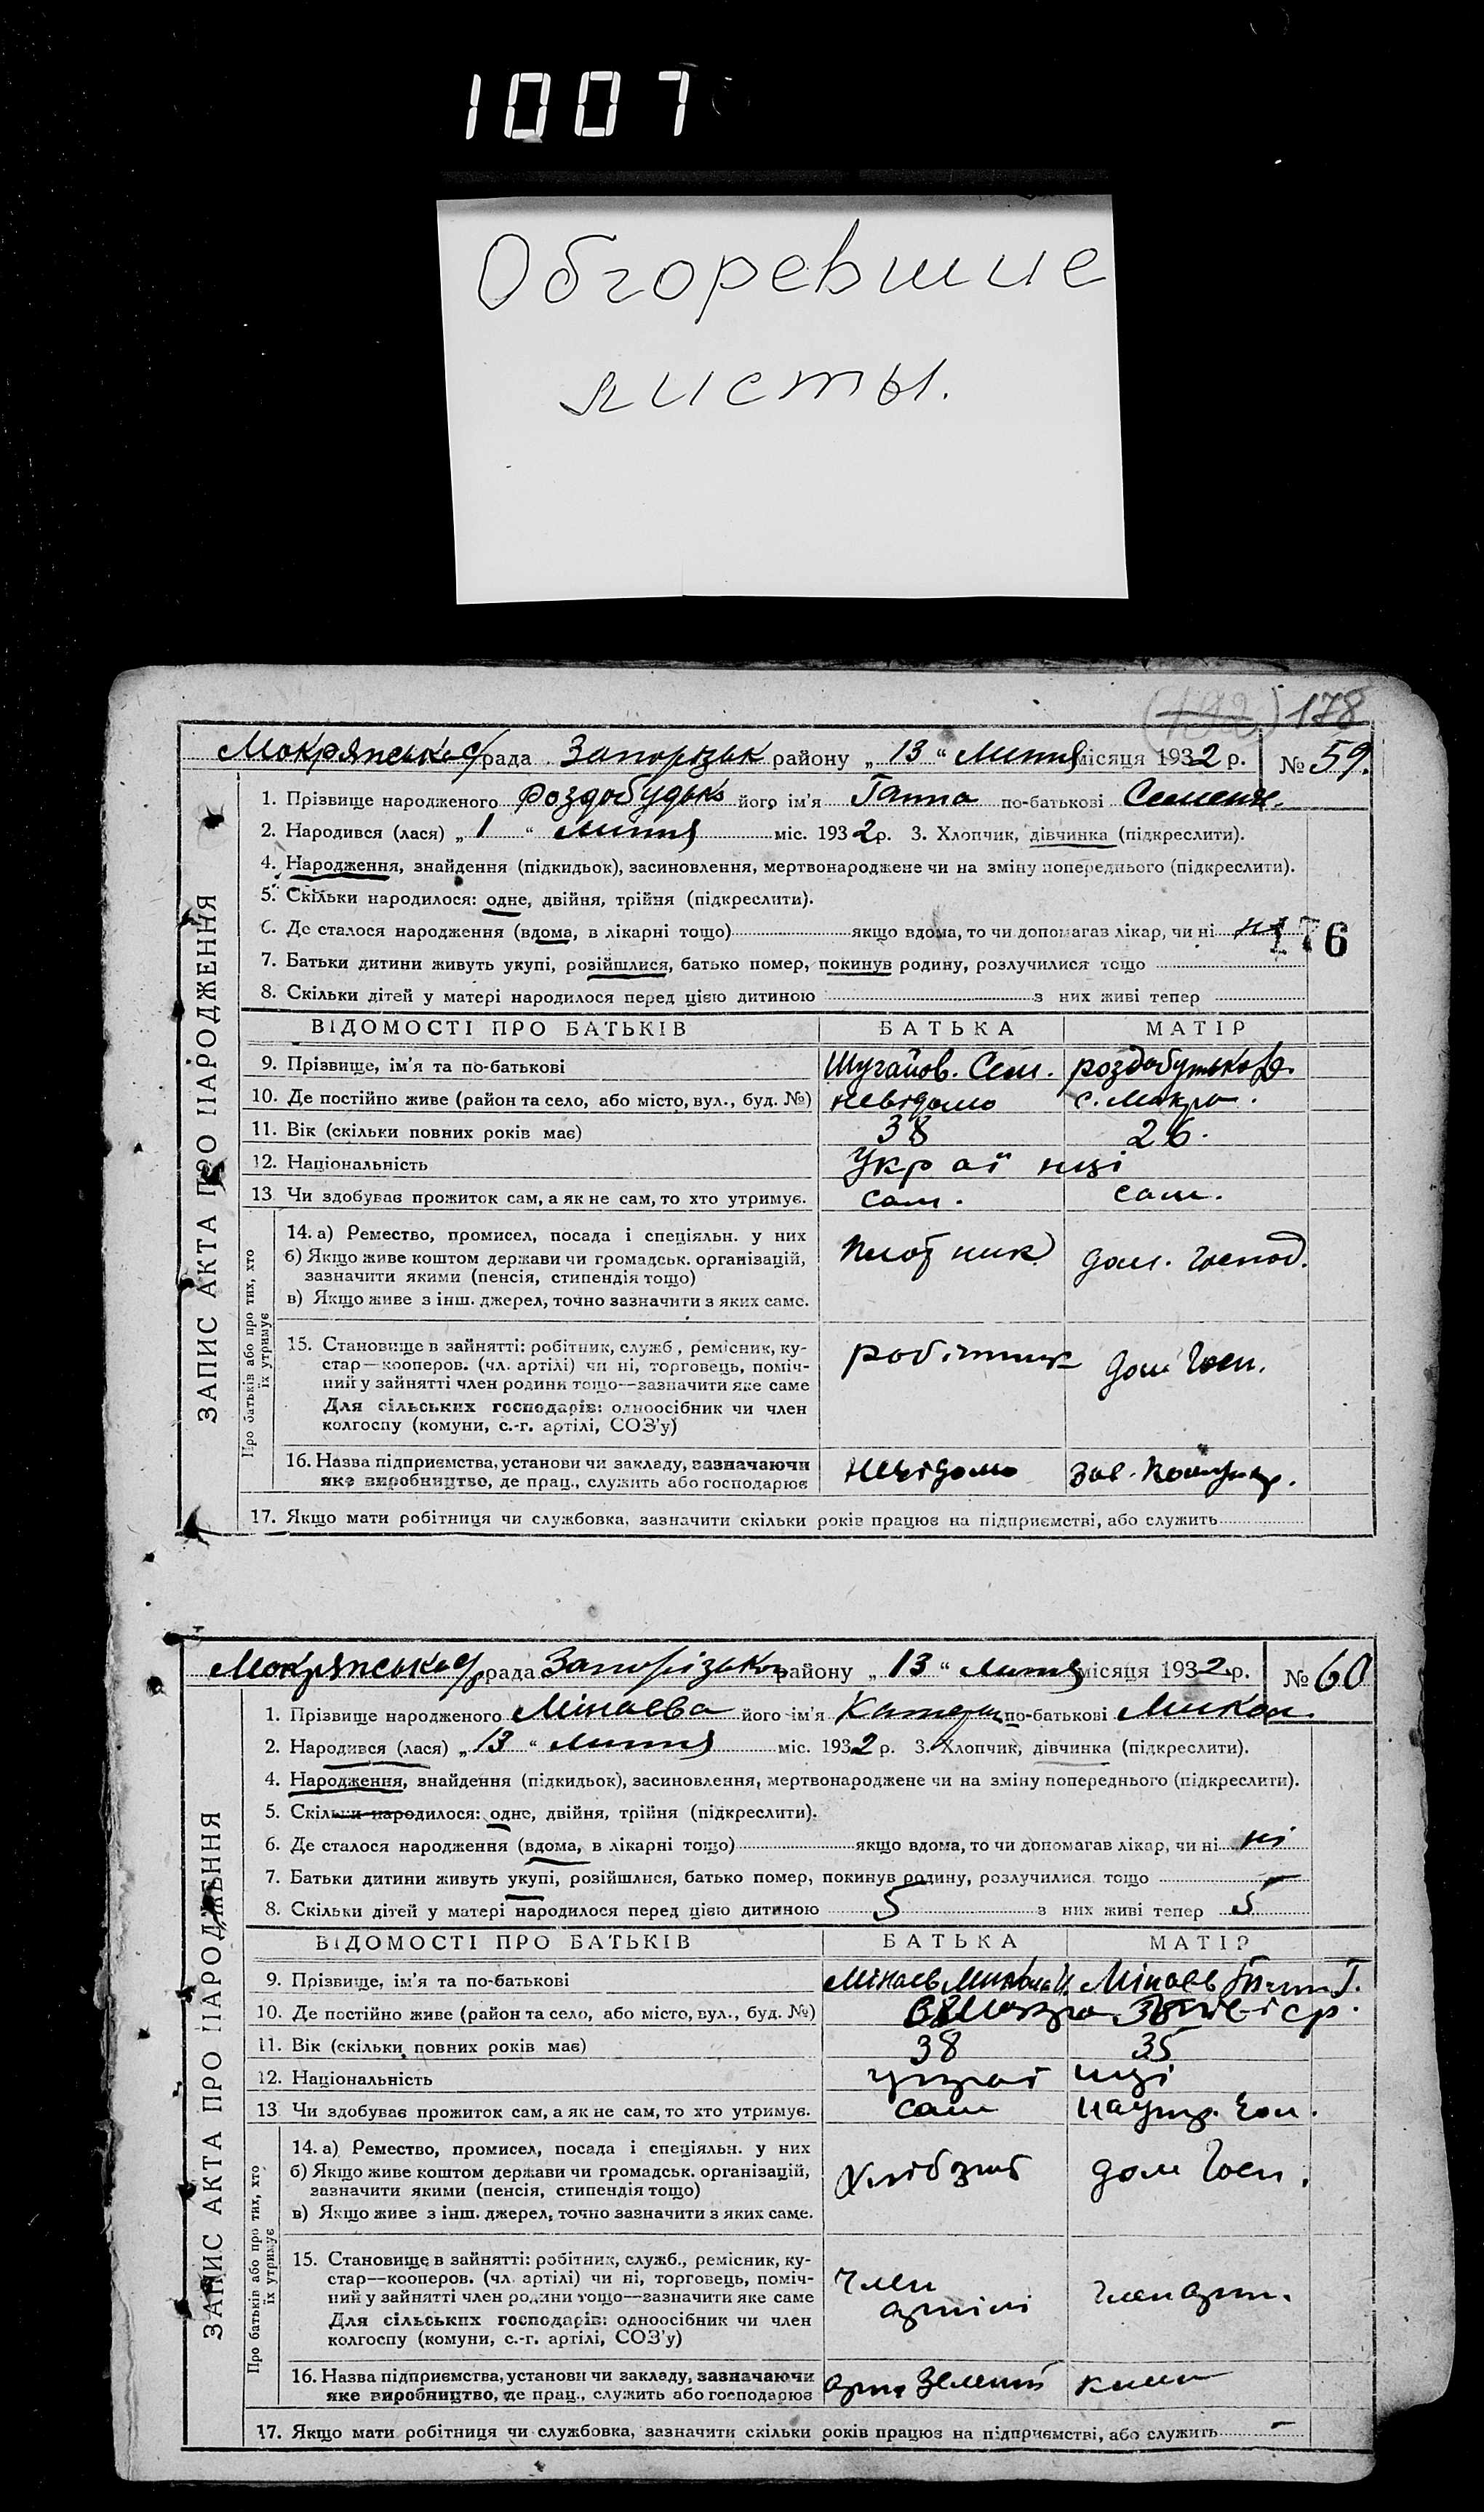 1007
Обгоревшие
листы.
(192) 178
Мокрянська с/рада Запорізьк району „ 13 “ Липня місяця 1932 р. № 59.
1. Прізвище народженого Роздобудько його ім'я Ганна по-батькові Семенів.
2. Народився (лася) „ 1 “ липня міс. 1932 р. 3. Хлопчик, дівчинка (підкреслити).
4. Народження, знайдення (підкидьок), засиновлення, мертвонароджене чи на зміну попереднього (підкреслити).
5. Скільки народилося: одне, двійня, трійня (підкреслити).
6. Де сталося народження (вдома, в лікарні тощо) якщо вдома, то чи допомагав лікар, чи ні ні
176
7. Батьки дитини живуть укупі, розійшлися, батько помер, покинув родину, розлучилися тощо
8. Скільки дітей у матері народилося перед цією дитиною з них живі тепер
ВІДОМОСТІ ПРО БАТЬКІВ БАТЬКА МАТІР
9. Прізвище, ім'я та по-батькові Шугайов. Сем. роздобудько
10. Де постійно живе (район та село, або місто, вул., буд. №) невідомо с. Мокра.
11. Вік (скільки повних років має) 38 26.
12. Національність Украї нці
13. Чи здобуває прожиток сам, а як не сам, то хто утримує. сам. сам.
14. а) Ремество, промисел, посада і спеціяльн. у них
б) Якщо живе коштом держави чи громадськ. організацій,
зазначити якими (пенсія, стипендія тощо)
в) Якщо живе з інш. джерел, точно зазначити з яких саме.
плотник дом. господ.
15. Становище в зайнятті: робітник, служб., ремісник, ку-
стар—кооперов. (чл. артілі) чи ні, торговець, поміч-
ний у зайнятті член родини тощо—зазначити яке саме
Для сільських господарів: одноосібник чи член
колгоспу (комуни, с.-г. артілі, СОЗ'у)
робітник дом госп.
16. Назва підприємства, установи чи закладу, зазначаючи
яке виробництво, де прац., служить або господарює
Невідомо зав.
17. Якщо мати робітниця чи службовка, зазначити скільки років працює на підприємстві, або служить
ЗАПИС АКТА ПРО НАРОДЖЕННЯ
Про батьків або про тих, хто
їх утримує
Мокрянська с/рада Запорізьког району „ 13 “ липня місяця 1932 р. № 60
1. Прізвище народженого Мінаєва його ім'я Катерин по-батькові Микол.
2. Народився (лася) „ 13 “ липня міс. 1932 р. 3. Хлопчик, дівчинка (підкреслити).
4. Народження, знайдення (підкидьок), засиновлення, мертвонароджене чи на зміну попереднього (підкреслити).
5. Скільки народилося: одне, двійня, трійня (підкреслити).
6. Де сталося народження (вдома, в лікарні тощо) якщо вдома, то чи допомагав лікар, чи ні ні
7. Батьки дитини живуть укупі, розійшлися, батько помер, покинув родину, розлучилися тощо
8. Скільки дітей у матері народилося перед цією дитиною 5 з них живі тепер 5
ВІДОМОСТІ ПРО БАТЬКІВ БАТЬКА МАТІР
9. Прізвище, ім'я та по-батькові Мінаєв Микола И. Мінаєв Г.
10. Де постійно живе (район та село, або місто, вул., буд. №)
11. Вік (скільки повних років має) 38 35
12. Національність украї нці
13. Чи здобуває прожиток сам, а як не сам, то хто утримує. сам на утр. чол.
14. а) Ремество, промисел, посада і спеціяльн. у них
б) Якщо живе коштом держави чи громадськ. організацій,
зазначити якими (пенсія, стипендія тощо)
в) Якщо живе з інш. джерел, точно зазначити з яких саме.
Хлібороб дом госп.
15. Становище в зайнятті: робітник, служб., ремісник, ку-
стар—кооперов. (чл. артілі) чи ні, торговець, поміч-
ний у зайнятті член родини тощо—зазначити яке саме
Для сільських господарів: одноосібник чи член
колгоспу (комуни, с.-г. артілі, СОЗ'у)
член
артілі член арт.
16. Назва підприємства, установи чи закладу, зазначаючи
яке виробництво, де прац., служить або господарює
арт. Зелений
17. Якщо мати робітниця чи службовка, зазначити скільки років працює на підприємстві, або служить –
ЗАПИС АКТА ПРО НАРОДЖЕННЯ
Про батьків або про тих, хто
їх утримує